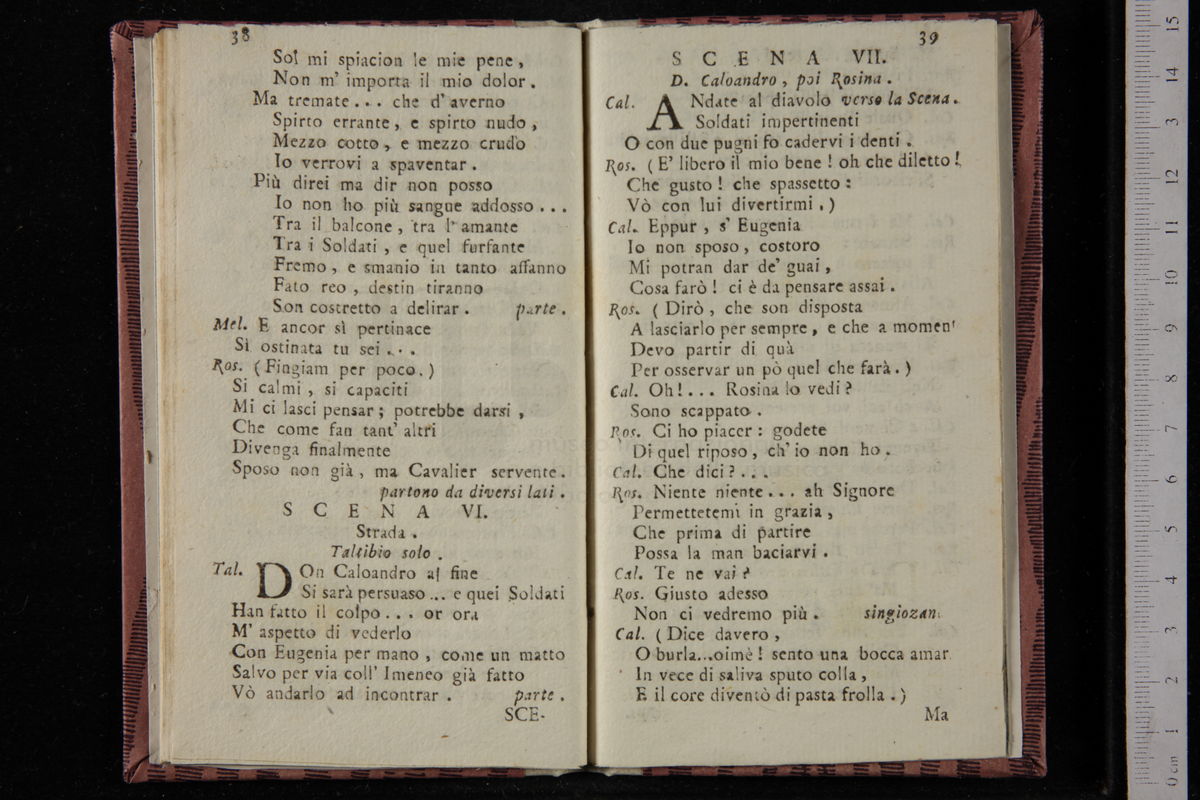 38
Sol mi spiacion le mie pene,
Non m' importa il mio dolor.
Ma tremate... che d' averno
Spirto errante, e spirto nudo,
Mezzo cotto, e mezzo crudo
Io verrovi a spaventar.
Più direi ma dir non posso
Io non ho più sangue addosso...
Tra il balcone, tra l' amante
Tra i Soldati, e quel furfante
Fremo, e smanio in tanto affanno
Fato reo, destin tiranno
Son costretto a delirar. parte.
Mel. E ancor sì pertinace
Sì ostinata tu sei...
Ros. (Fingiam per poco.)
Si calmi, si capaciti
Mi ci lasci pensar; potrebbe darsi,
Che come fan tant' altri
Divenga finalmente
Sposo non già, ma Cavalier servente.
partono da diversi lati.
SCENA VI.
Strada.
Taltibio solo.
Tal. DOn Caloandro al fine
Si sarà persuaso... e quei Soldati
Han fatto il colpo... or ora
M' aspetto di vederlo
Con Eugenia per mano, come un matto
Salvo per via coll' Imeneo già fatto
Vò andarlo ad incontrar. parte.
SCE-
39
SCENA VII.
D. Caloandro, poi Rosina.
Cal. ANdate al diavolo verso la Scena.
Soldati impertinenti
O con due pugni fo cadervi i denti.
Ros. (E' libero il mio bene! oh che diletto!
Che gusto! che spassetto:
Vò con lui divertirmi.)
Cal. Eppur, s' Eugenia
Io non sposo, costoro
Mi potran dar de' guai,
Cosa farò! ci è da pensare assai.
Ros. (Dirò, che son disposta
A lasciarlo per sempre, e che a momen
Devo partir di quà
Per osservar un pò quel che farà.)
Cal. Oh!... Rosina lo vedi?
Sono scappato.
Ros. Ci ho piacer: godete
Di quel riposo, ch' io non ho.
Cal. Che dici?...
Ros. Niente niente... ah Signore
Permettetemi in grazia,
Che prima di partire
Possa la man baciarvi.
Cal. Te ne vai?
Ros. Giusto adesso
Non ci vedremo più. singiozan
Cal. (Dice davero,
O burla...oimè! sento una bocca amar
In vece di saliva sputo colla,
E il core diventò di pasta frolla.)
Ma
0 cm 1 2 3 4 5 6 7 8 9 10 11 12 13 14 15